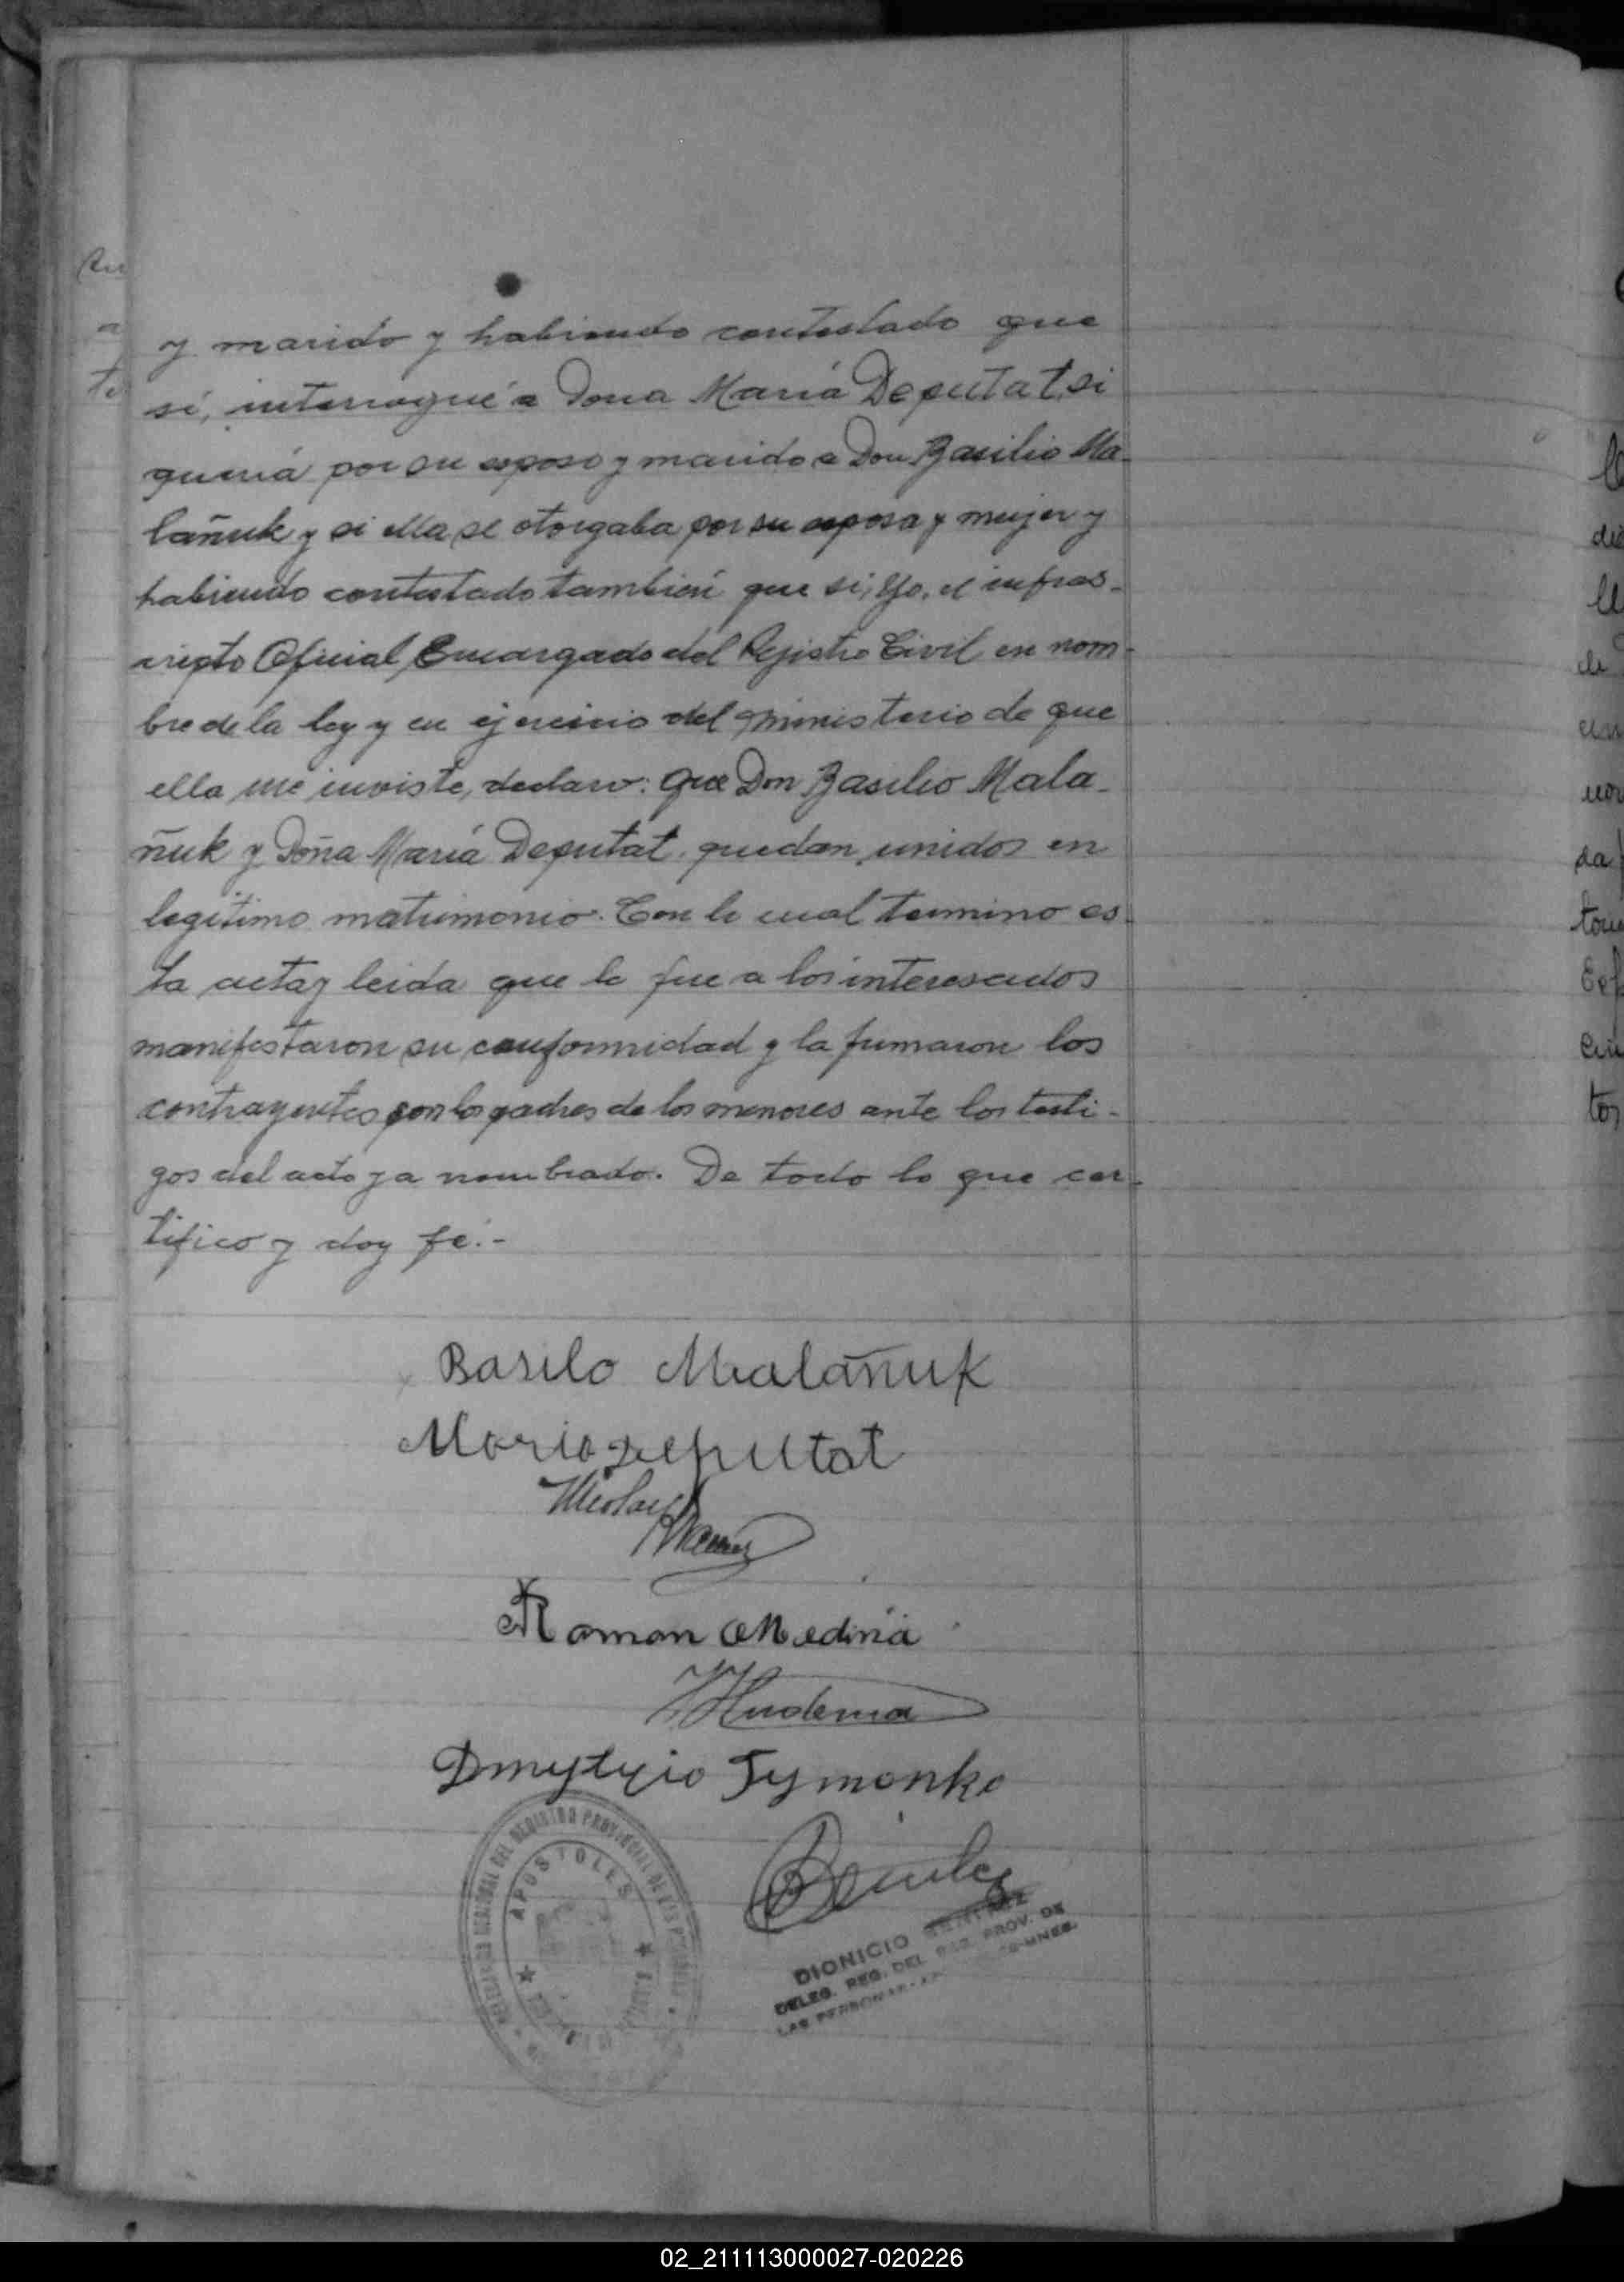 y marido y habiendo contestado que
sí, interrogué a Doña María Deputat, si
quería por su esposo y marido a Don Basilio Ma-
lañuk y si ella se otorgaba por su esposa y mujer y
habiendo contestado también que sí, Yo, el infras-
cripto Oficial Encargado del Registro Civil en nom-
bre de la ley y en ejercicio del ministerio de que
ella me inviste, declaro: Que Don Basilio Mala-
ñuk y Doña María Deputat quedan unidos en
legítimo matrimonio. Con lo cual termino es-
ta acta y leída que le fue a los interesados
manifestaron su conformidad y la firmaron los
contrayentes con los padres de los menores ante los testi-
gos del acto ya nombrado. De todo lo que cer-
tifico y doy fé.-
Basilo Malañuk
Maria Deputat
Roman Medina
Dmytyio Tymonko
APOSTOLES
DIONICIO
DELEG. REG. DEL REG. PROV. DE
LAS PERSONAS
02_211113000027-020226